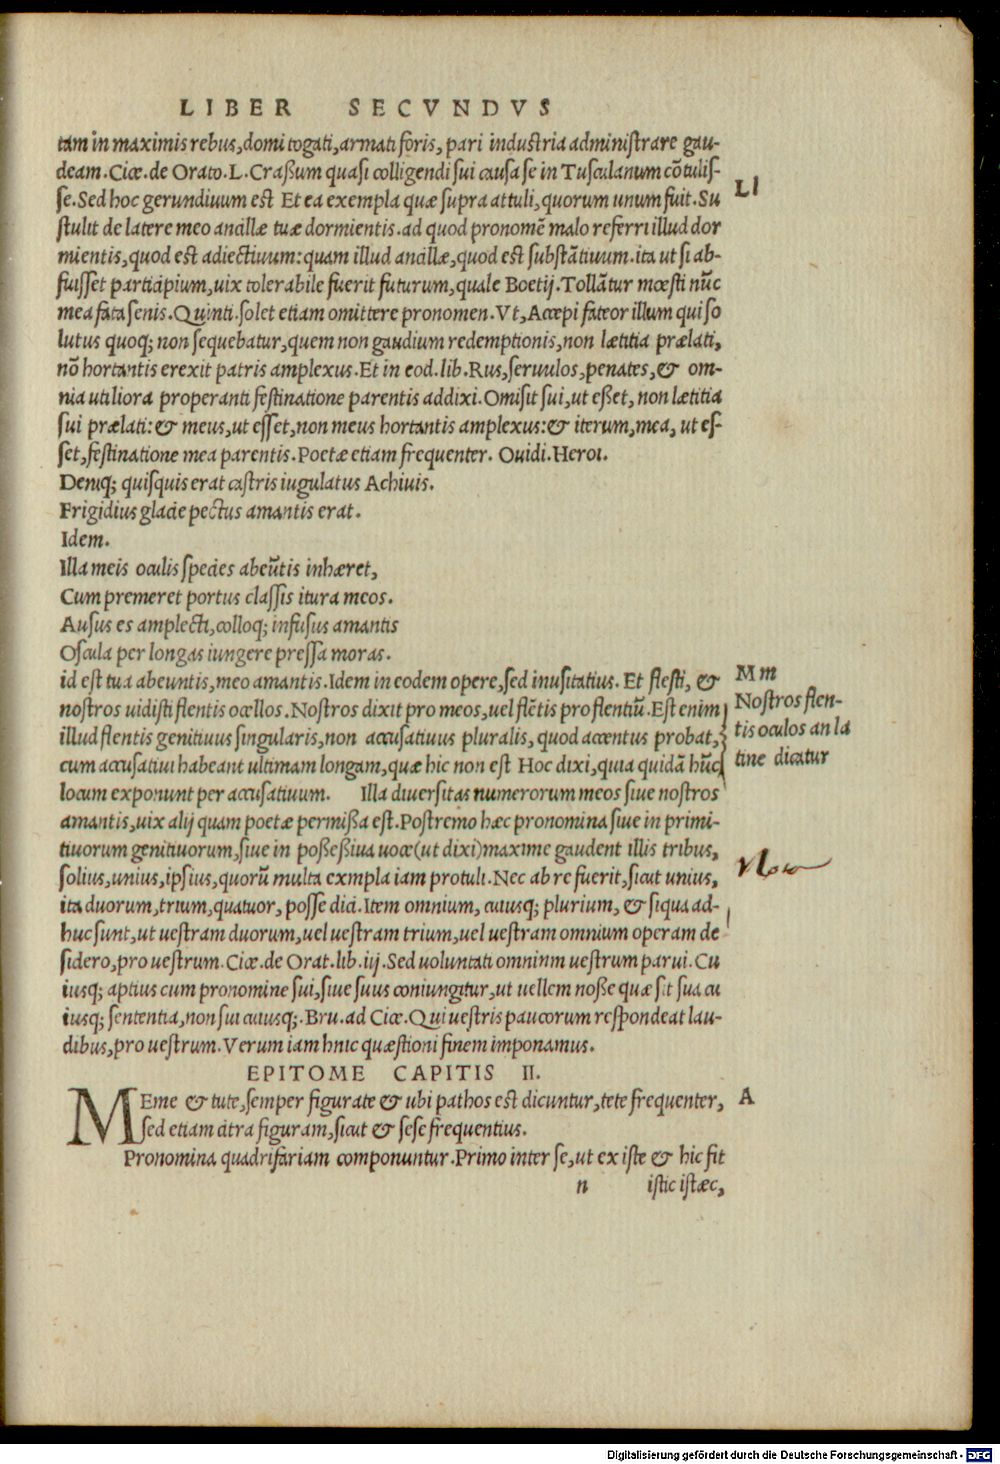 LIBER SECVNDVS
tam in maximis rebus, domi togati, armati foris, pari industria administrare gau-
deam. Cice. de Orato. L. Craßum quasi colligendi sui causa se in Tusculanum cõtulis-
se. Sed hoc gerundiuum est Et ea exempla quæ supra attuli, quorum unum fuit. Su
Ll
stulit de latere meo ancillæ tuæ dormientis. ad quod pronomẽ malo referri illud dor
mientis, quod est adiectiuum: quam illud ancillæ, quod est substãtiuum. ita ut si ab-
fuisset participium, uix tolerabile fuerit futurum, quale Boetij. Tollãtur mœsti nũc
mea fata senis. Quinti. solet etiam omittere pronomen. Vt, Accepi fateor illum qui so
lutus quoq; non sequebatur, quem non gaudium redemptionis, non lætitia prælati,
nõ hortantis erexit patris amplexus. Et in eod. lib. Rus, seruulos, penates, & om-
nia utiliora properanti festinatione parentis addixi. Omisit sui, ut eßet, non lætitia
sui prælati: & meus, ut esset, non meus hortantis amplexus: & iterum, mea, ut es-
set, festinatione mea parentis. Poetæ etiam frequenter. Ouidi. Heroi.
Deniq; quisquis erat castris iugulatus Achiuis.
Frigidius glacie pectus amantis erat.
Idem.
Illa meis oculis species abeũtis inhæret,
Cum premeret portus classis itura meos.
Ausus es amplecti, colloq; infusus amantis
Oscula per longas iungere pressa moras.
id est tua abeuntis, meo amantis. Idem in eodem opere, sed inusitatius. Et flesti, &
nostros uidisti flentis ocellos. Nostros dixit pro meos, uel flẽtis pro flentiũ. Est enim
illud flentis genitiuus singularis, non accusatiuus pluralis, quod accentus probat,
cum accusatiui habeant ultimam longam, quæ hic non est Hoc dixi, quia quidã hũc
locum exponunt per accusatiuum. Illa diuersitas numerorum meos siue nostros
Mm
Nostros flen-
tis oculos an la
tine dicatur
amantis, uix alij quam poetæ permißa est. Postremo hæc pronomina siue in primi-
tiuorum genitiuorum, siue in poßeßiua uoce (ut dixi) maxime gaudent illis tribus,
solius, unius, ipsius, quorũ multa exmpla iam protuli. Nec ab re fuerit, sicut unius,
ita duorum, trium, quatuor, posse dici. Item omnium, cuiusq; plurium, & siqua ad-
huc sunt, ut uestram duorum, uel uestram trium, uel uestram omnium operam de
sidero, pro uestrum. Cice. de Orat. lib. iij. Sed uoluntati omninm uestrum parui. Cu
iusq; aptius cum pronomine sui, siue suus coniungitur, ut uellem noße quæ sit sua cu
iusq; sententia, non sui cuiusq;. Bru. ad Cice. Qui uestris paucorum respondeat lau-
dibus, pro uestrum. Verum iam hnic quæstioni finem imponamus.
EPITOME CAPITIS II.
MEme & tute, semper figurate & ubi pathos est dicuntur, tete frequenter,
A
sed etiam citra figuram, sicut & sese frequentius.
Pronomina quadrifariam componuntur. Primo inter se, ut ex iste & hic fit
n istic istæc,
Digitalisierung gefördert durch die Deutsche Forschungsgemeinschaft - DFG